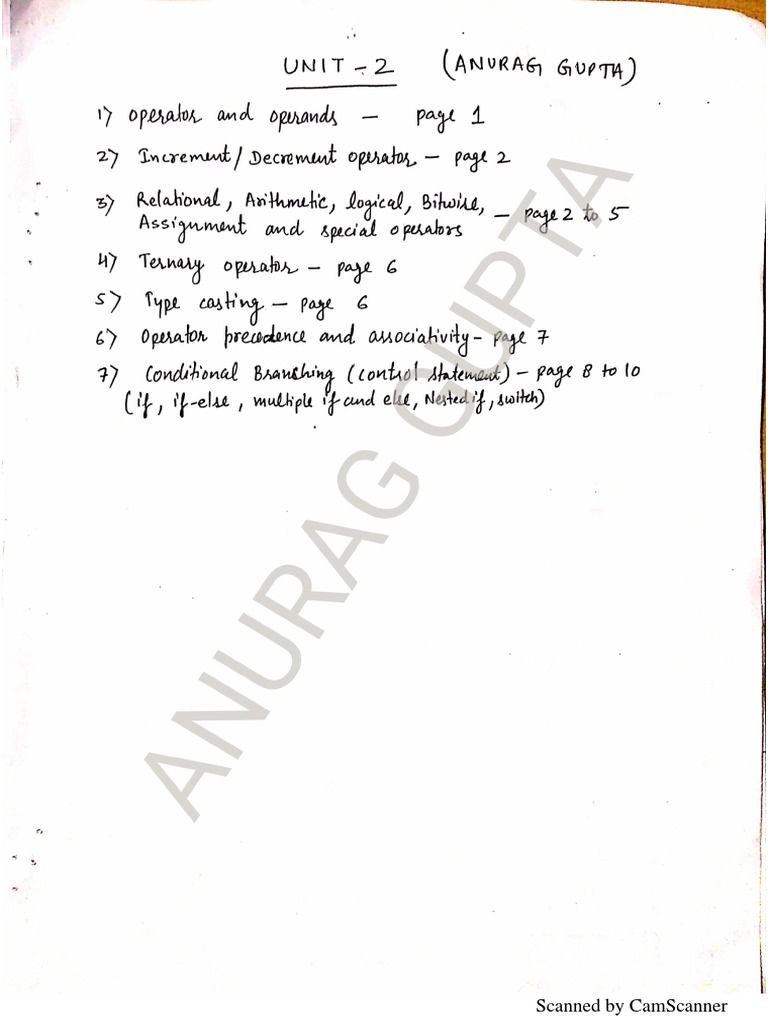 UNIT - 2 (ANURAG GUPTA)
1) Operator and operands — page 1
2) Increment / Decrement operator — page 2
3) Relational, Arithmetic, logical, Bitwise,
Assignment and special operators — page 2 to 5
4) Ternary operator — page 6
5) Type casting — page 6
6) Operator precedence and associativity - page 7
7) Conditional Branching (control statement) — page 8 to 10
(if, if-else, multiple if and else, Nested if, switch)
ANURAG GUPTA
Scanned by CamScanner